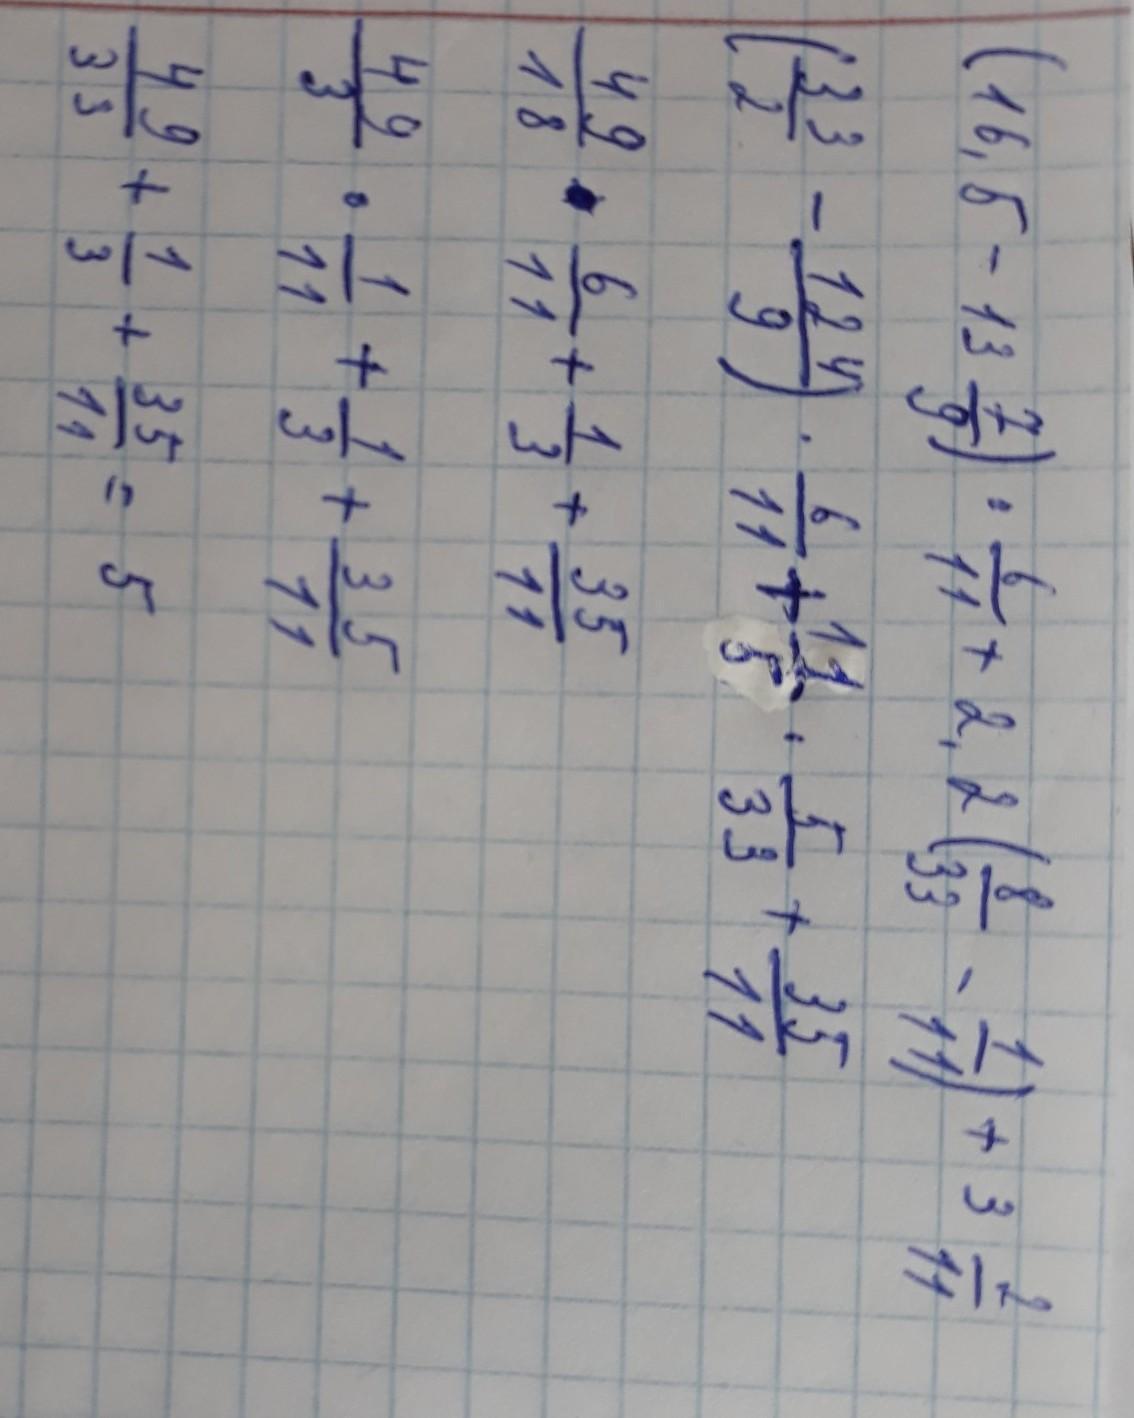 (16,5 - 13 7/9) · 6/11 + 2,2 (8/33 - 1/11) + 3 2/11
(33/2 - 124/9) · 6/11 + 11/5 · 5/33 + 35/11
49/18 · 6/11 + 1/3 + 35/11
49/3 · 1/11 + 1/3 + 35/11
49/33 + 1/3 + 35/11 = 5